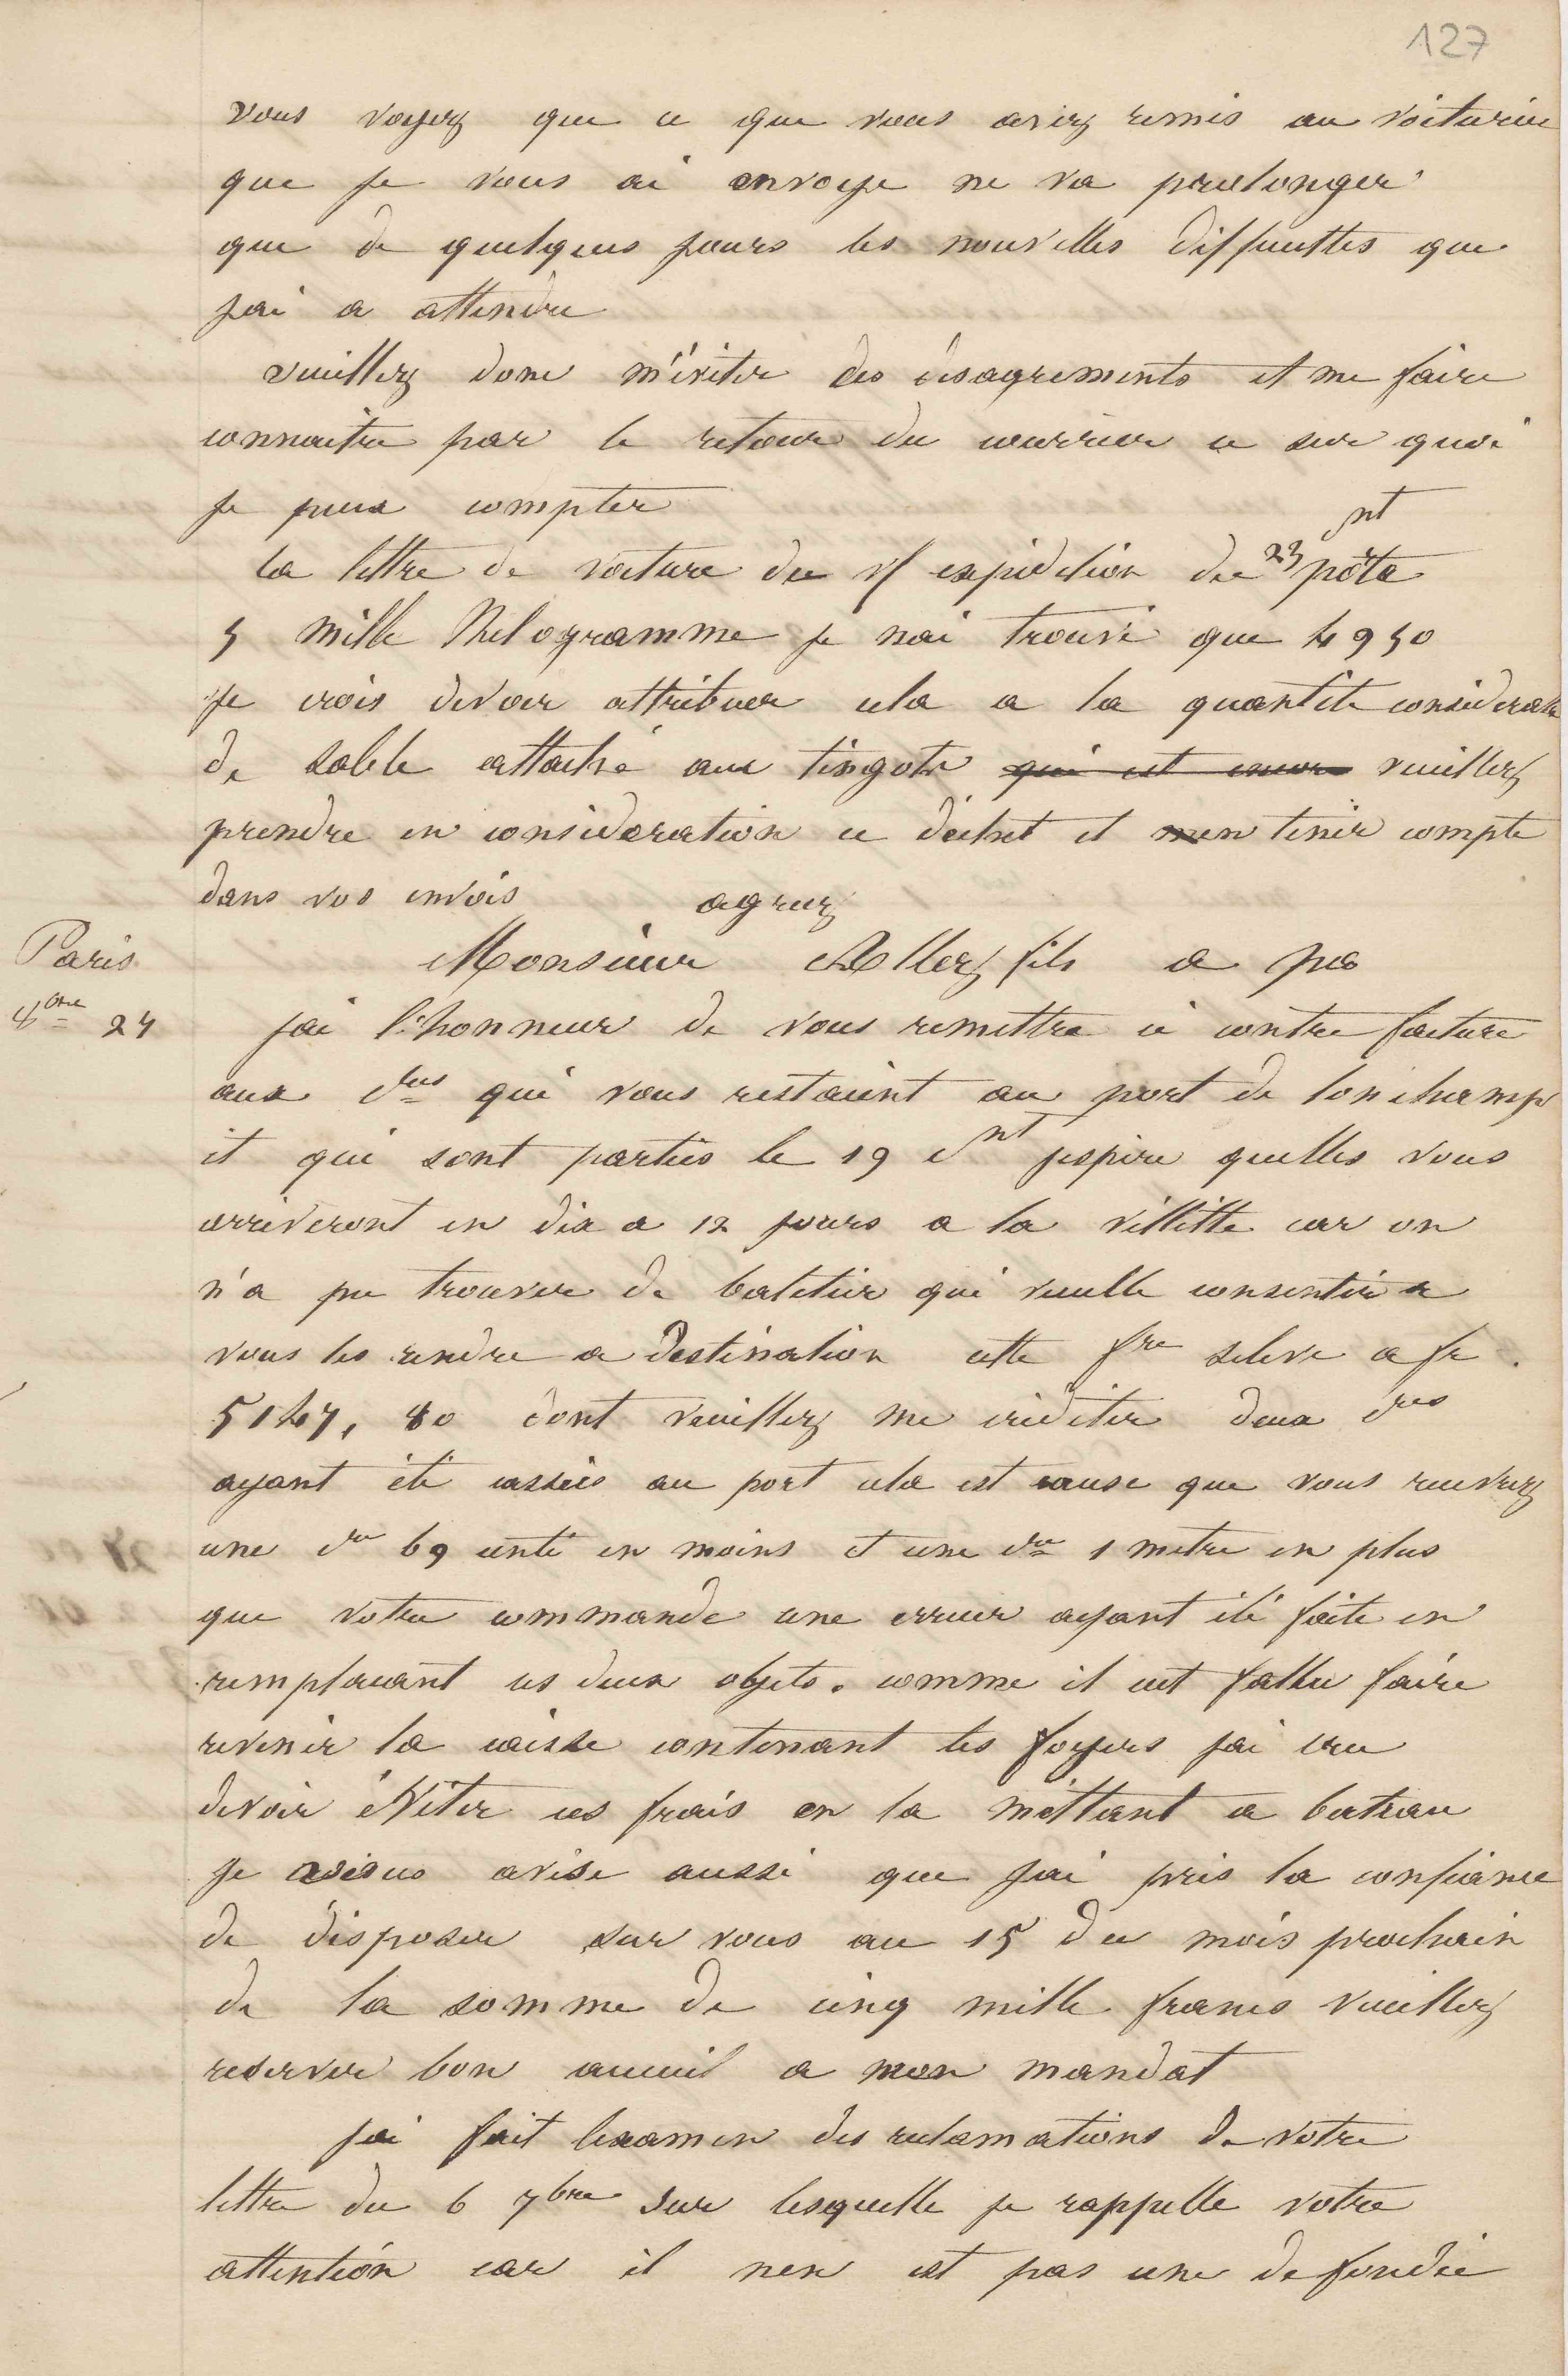 127
vous voyez que ce que vous avez remis au voiturier
que je vous ai envoye ne va prolonger
que de quelques jours les nouvelles disputtes que
jai a attendre
veuillez donc m'éviter des désagrements et me faire
connaitre par le retour du courrier ce sur quoi
je peux compter
la lettre de voiture de v/ expidition du 23 pnt pote
5 mille Kilogramme je nai trouvé que 4950
je crois devoir attribuer cela a la quantite considerable
de sable attaché aux lingots qui est encore veuillez
prendre en consideration ce déchet et men tenir compte
dans vos envois agreez
Monsieur Allez fils a pes
Paris
8bre 24
jai l'honneur de vous remettre ci contre facture
aux dres qui vous restaient au port de lonchamp
et qui sont parties le 19 dnt jespire quelles vous
arriveront en dix a 12 jours a la villette car on
n'a pu trouver de batelier qui veuille consentir a
vous les rendre a Destination cette fre seleve a fr
5147, 80 dont veuillez me créditer deux dres
ayant été cassées au port cela est cause que vous recevrez
une dre 69 cente en moins et une dre 1 metre en plus
que votre commande une erreur ayant été faite en
remplacant ces deux objets. comme il eut fallu faire
revenir la caisse contenant les foyers jai cru
devoir éViter ces frais en la mettant a bateau
je vous avise aussi que jai pris la confiance
de disposer sur vous au 15 du mois prochain
de la somme de cinq mille francs veuillez
reserver bon acceuil a mon mandat
jai fait lexamen des reclamations de votre
lettre du 6 7bre sur lesquelle je rappelle votre
attention car il nen est pas une de fondée